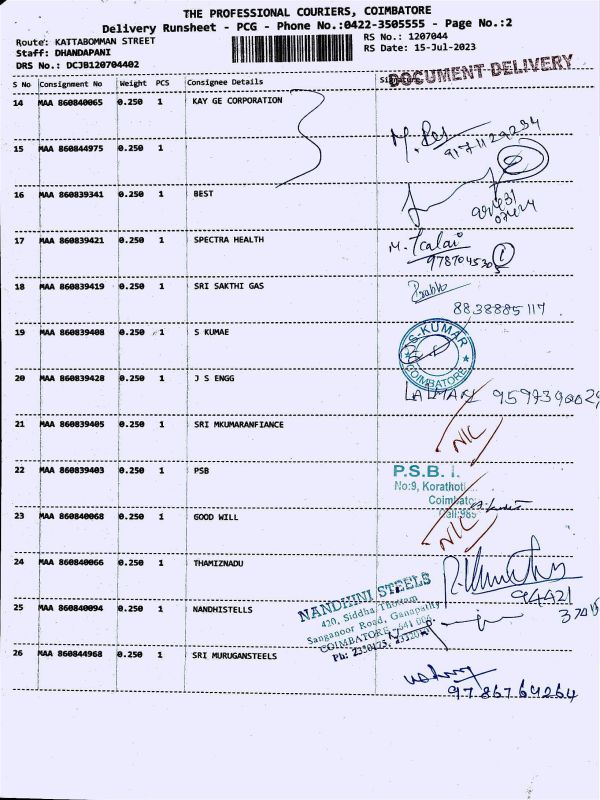 THE PROFESSIONAL COURIERS, COIMBATORE
Delivery Runsheet - PCG - Phone No.:0422-3505555 - Page No.:2
Route: KATTABOMMAN STREET RS No.: 1207044
Staff: DHANDAPANI RS Date: 15-Jul-2023
DRS No.: DCJB120704402
DOCUMENT DELIVERY
S No Consignment No Weight PCS Consignee Details
14 MAA 860840065 0.250 1 KAY GE CORPORATION
15 MAA 860844975 0.250 1
16 MAA 860839341 0.250 1 BEST
17 MAA 860839421 0.250 1 SPECTRA HEALTH
M. Kalai
9787045305 1
18 MAA 860839419 0.250 1 SRI SAKTHI GAS
Prabhu
8838885117
19 MAA 860839408 0.250 1 S KUMAE
S-KUMAR
COIMBATORE
20 MAA 860839428 0.250 1 J S ENGG
LALMANI
21 MAA 860839405 0.250 1 SRI MKUMARANFIANCE
N/C
22 MAA 860839403 0.250 1 PSB
P.S.B.
No:9, Korathot
Coimbato
Cell:985
23 MAA 860840068 0.250 1 GOOD WILL
N/C
24 MAA 860840066 0.250 1 THAMIZNADU
94421
25 MAA 860840094 0.250 1 NANDHISTELLS
NANDHINI STEELS
420, Siddha Thottam
Sanganoor Road, Ganapathy
COIMBATORE - 641 006.
26 MAA 860844968 0.250 1 SRI MURUGANSTEELS
9786769264